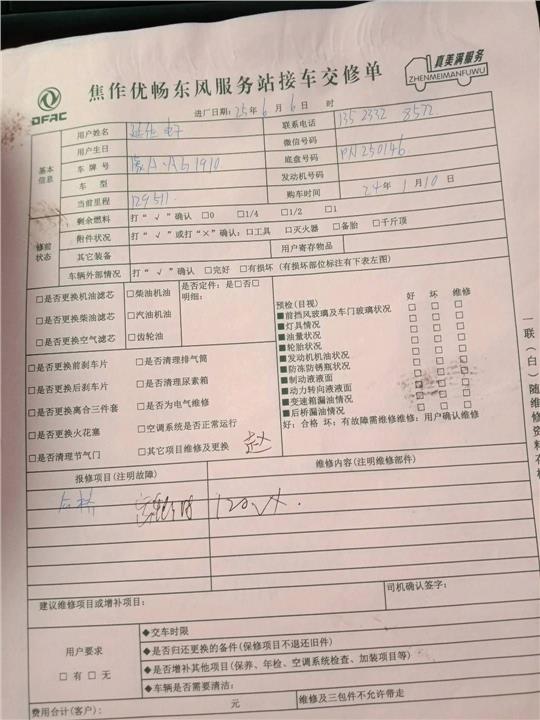 DFAC
焦作优畅东风服务站接车交修单
真美满服务
ZHENMEIMANFUWU
进厂日期: 25年 6月 6日 时
基本信息
用户姓名 联系电话 1352332 8572
用户生日 微信号码
车牌号 豫A·A51910 底盘号码 PN250146
车型 发动机号码
当前里程 129511 购车时间 24年 1月 10日
修前状态
剩余燃料 打“√”确认 □0 □1/4 □1/2 □1
附件状况 打“√”或打“×”确认: □工具 □灭火器 □备胎 □千斤顶
其它装备 用户寄存物品
车辆外部情况 打“√”确认 □完好 □有损坏 (有损坏部位标注有下表左图)
□是否更换机油滤芯 □柴油机油 是否定件: 是□否□
明细:
□是否更换柴油滤芯 □汽油机油
□是否更换空气滤芯 □齿轮油
预检(目视) 好 坏 维修
■前挡风玻璃及车门玻璃状况 □ □ □
■灯具情况 □ □ □
■油量状况 □ □ □
■轮胎状况 □ □ □
■发动机机油状况 □ □ □
■防冻防锈瓶状况 □ □ □
■制动液液面 □ □ □
■动力转向液液面 □ □ □
■变速箱漏油情况 □ □ □
■后桥漏油情况 □ □ □
好: 合格 坏: 有故障需维修维修: 用户确认维修
□是否更换前刹车片 □是否清理排气筒
□是否更换后刹车片 □是否清理尿素箱
□是否更换离合三件套 □是否为电气维修
□是否更换火花塞 □空调系统是否正常运行
□是否清理节气门 □其它项目维修及更换
报修项目(注明故障) 维修内容(注明维修部件)
后桥
建议维修项目或增补项目: 司机确认签字:
用户要求
□有 □无
◆交车时限
◆是否归还更换的备件(保修项目不退还旧件)
◆是否增补其他项目(保养、年检、空调系统检查、加装项目等)
◆车辆是否需要清洁:
费用合计(客户): 元 维修及三包件不允许带走
一联(白)随维修资料存档